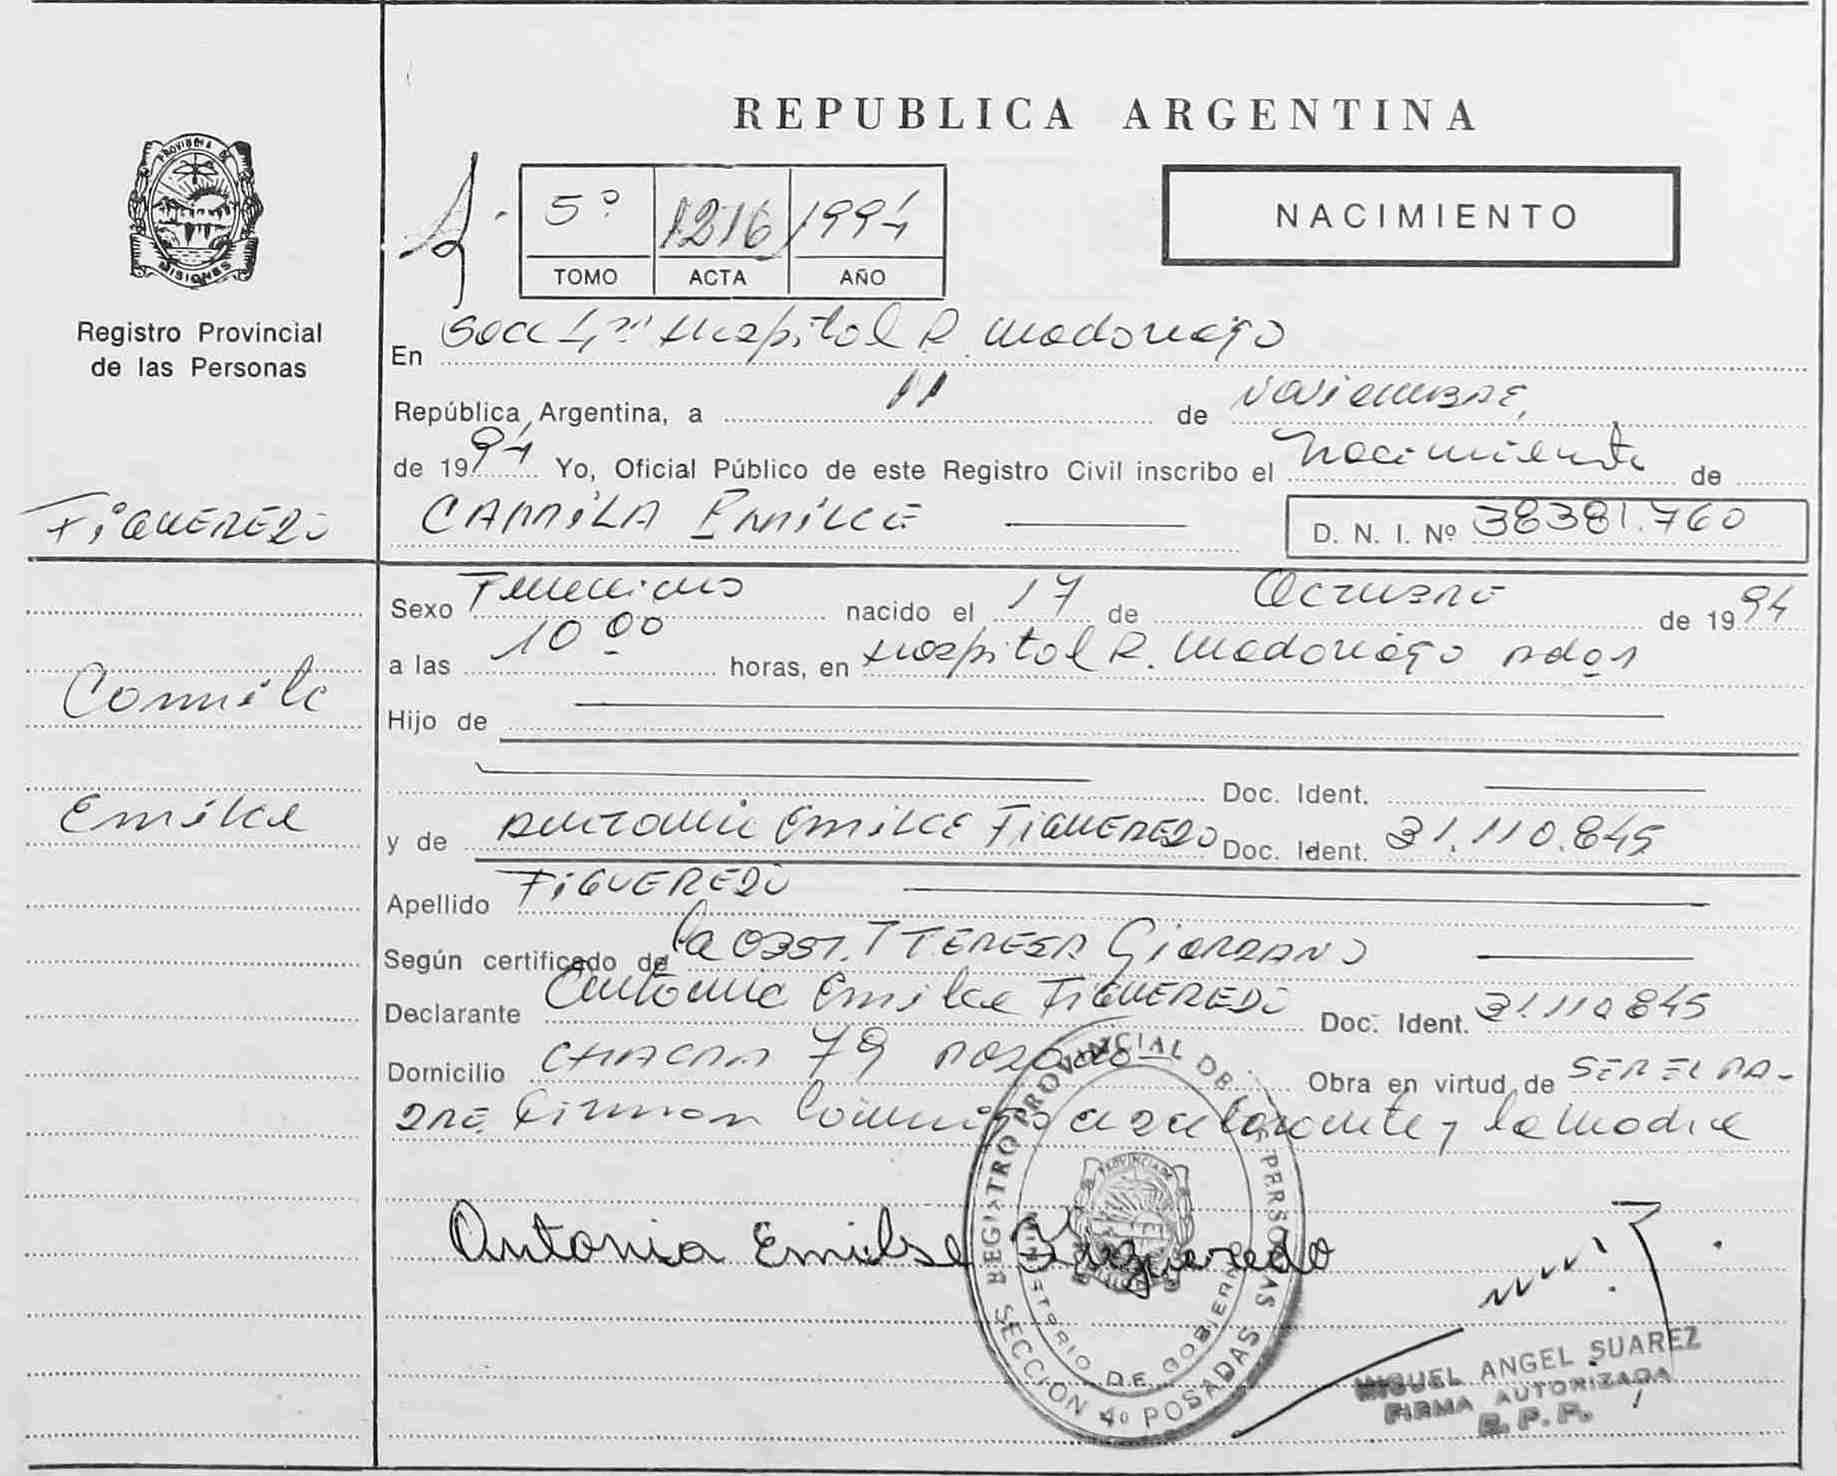 REPUBLICA ARGENTINA
PROVINCIA DE
MISIONES
Registro Provincial
de las Personas
5º 1216 1994
TOMO ACTA AÑO
NACIMIENTO
En Secc 4ta Hospital R. Madariaga
República Argentina, a 11 de noviembre,
de 1994 Yo, Oficial Público de este Registro Civil inscribo el nacimiento de
FIGUEREDO
CAMILA EMILCE
D. N. I. Nº 38381.760
Sexo Femenino nacido el 17 de OCTUBRE de 1994
a las 10 00 horas, en Hospital R. Madariaga Pdas
Camila
Hijo de
Doc. Ident.
Emilce
y de Antonia Emilce FIGUEREDO Doc. Ident. 31.110.845
Apellido FIGUEREDO
Según certificado de la OBST. TERESA GIORDANO
Declarante Antonia Emilce FIGUEREDO Doc. Ident. 31.110.845
Domicilio CHACRA 79 POSADAS Obra en virtud de SER EL PA-
DRE Firman conmigo declarante y la madre
Antonia Emilse Figueredo
REGISTRO PROVINCIAL DE LAS PERSONAS
MINISTERIO DE GOBIERNO
SECCION 4º POSADAS
MIGUEL ANGEL SUAREZ
FIRMA AUTORIZADA
R. P. P.